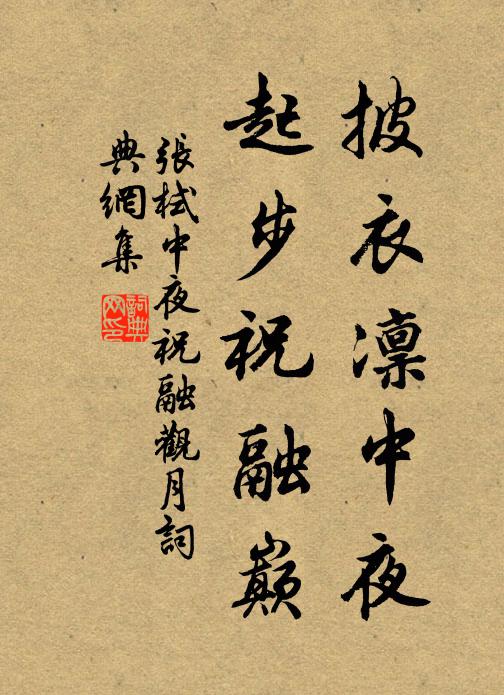 披衣凜中夜
起步祝融巔
張栻中夜祝融觀月詞
典網集
詞典
网印